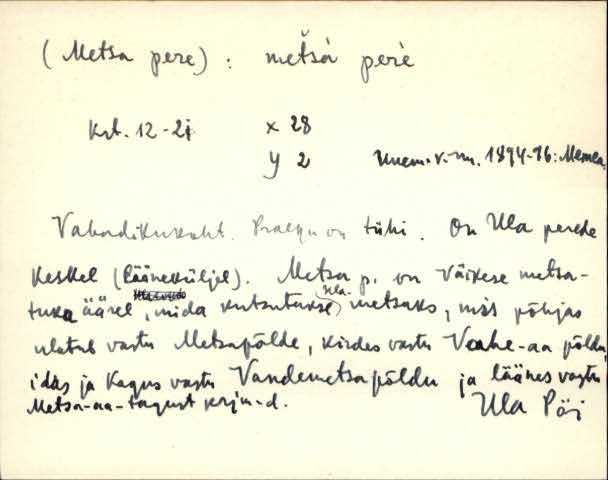 (Metsa pere) : metsa pere
Krt. 12-21 x 28
y 2 1894-96: Memla.
Vabadikukoht. Praegu on tühi. On Ula perede
keskel (lääneküljel). Metsa p. on väikese metsa-
tuka äärel, mida kutsutakse Ula-metsaks, mis põhjas
ulatub vastu Metsapõlde, kirdes vastu Veahe-aa põldu,
idas ja kagus vastu Vandemetsa põldu ja läänes vastu
Metsa-aa-tagust krjm-d. Ula Pöi